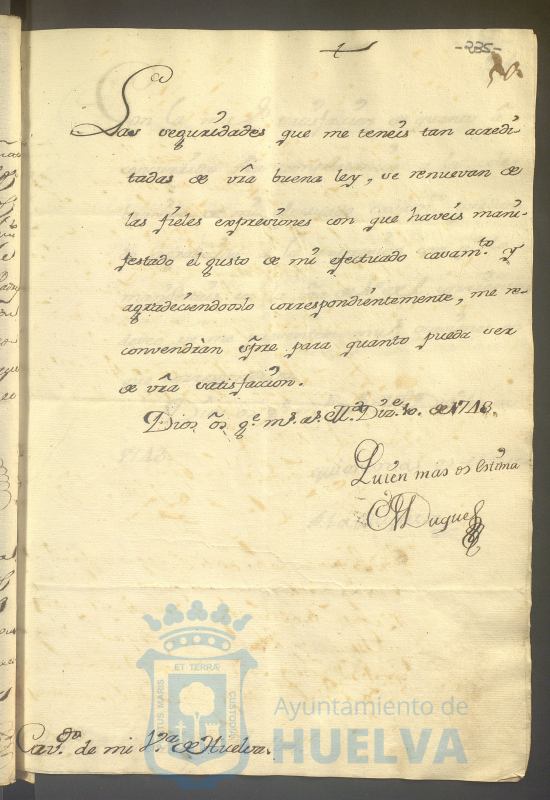 -235-
Las seguridades que me teneis tan acredi
tadas de vrã buena ley, se renuevan de
las fieles expresiones con que haveis mani
festado el gusto de mi efectuado casam.to y
agradeciendooslo correspondientemente, me re
convendrán sp̃re para quanto pueda ser
de vrã satisfaccion.
Dios õs g.e m.s a.s M.d Diz.e 10. de 1748.
Quien mas os estima
El Duque
Cav.do de mi V.a de Huelva.
ET TERRÆ
PORTUS MARIS
CUSTODIA
Ayuntamiento de
HUELVA